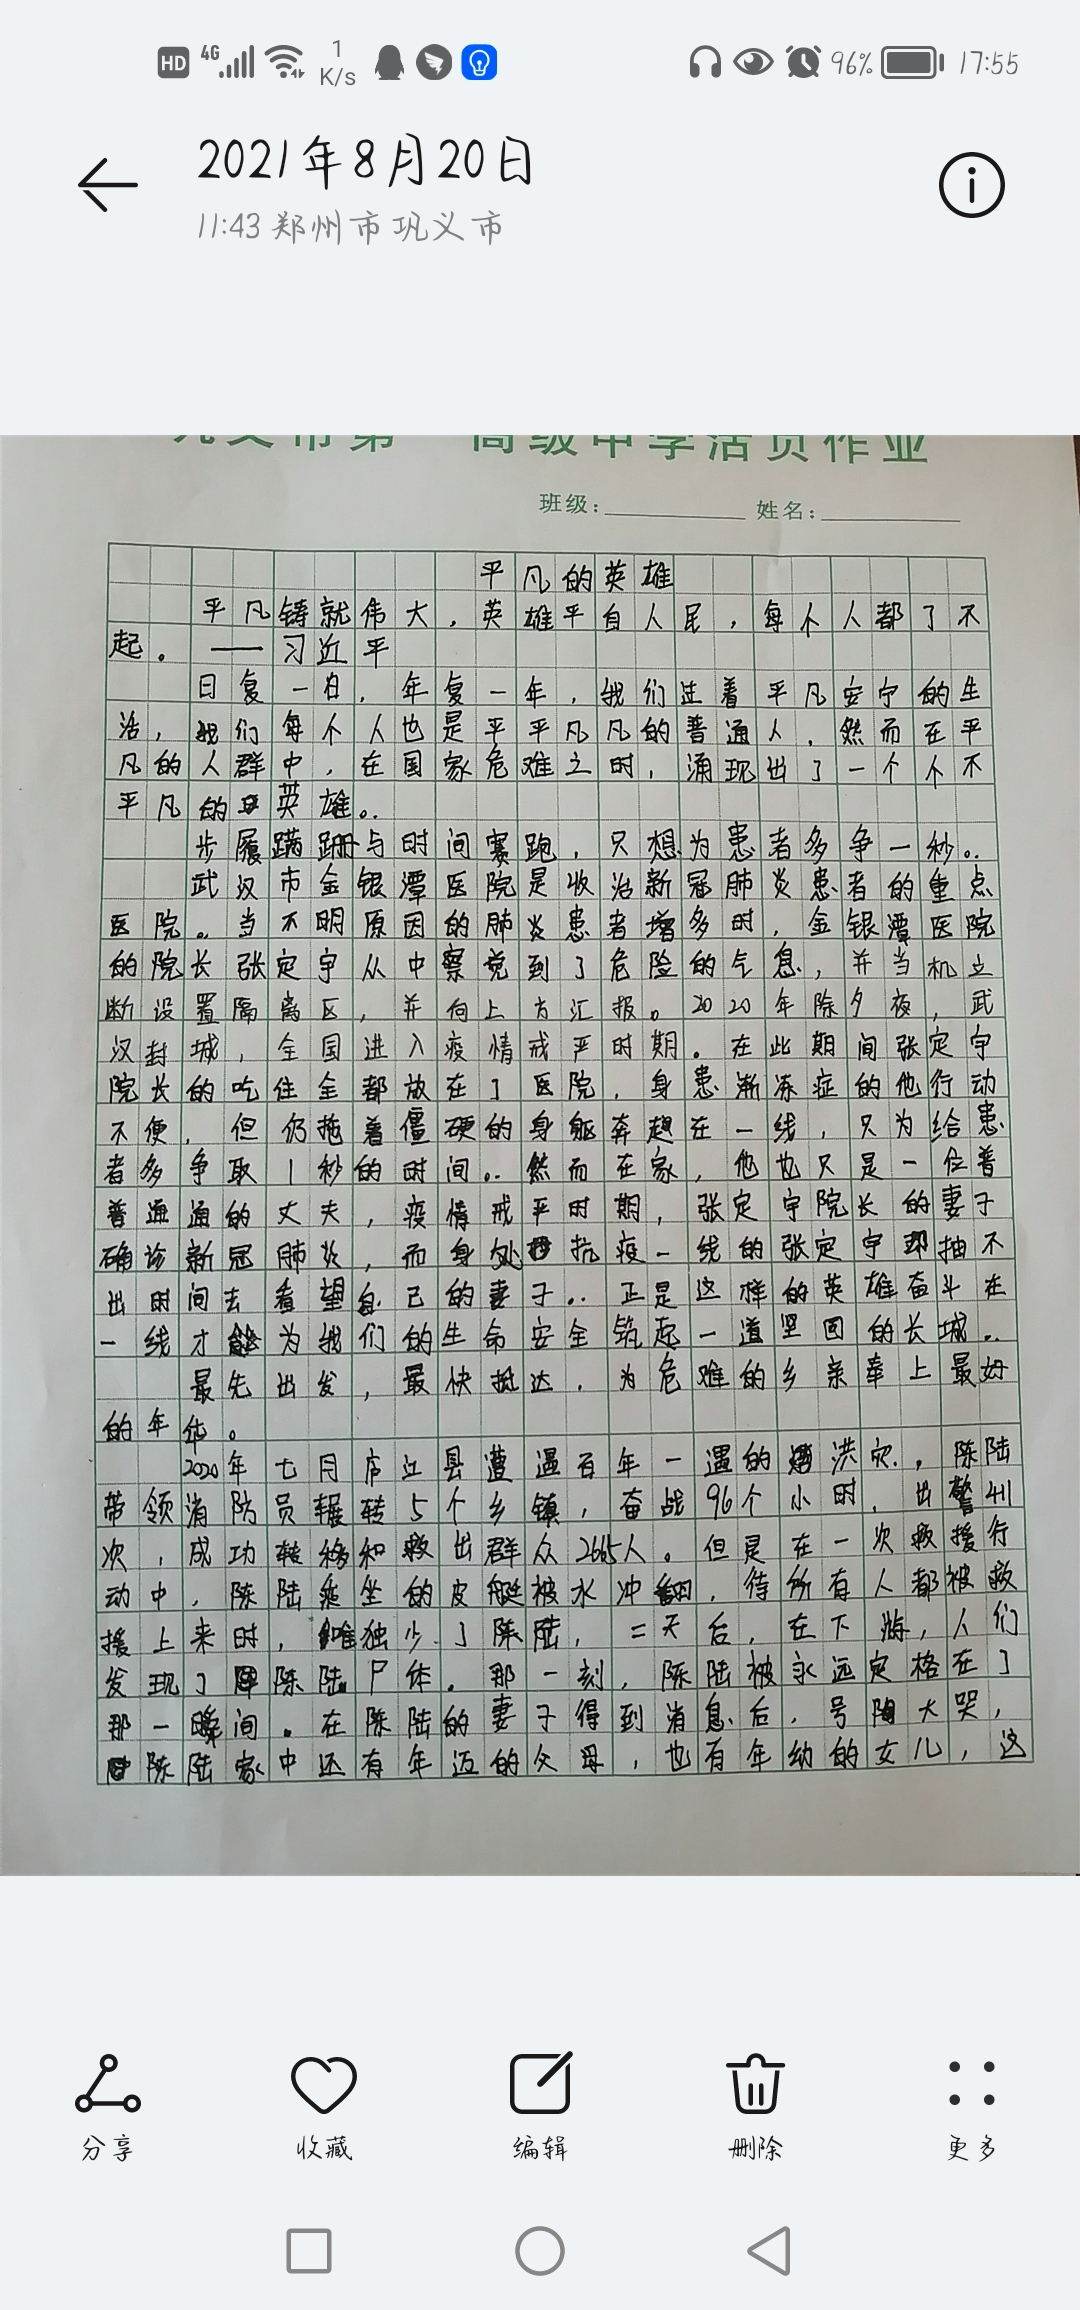 HD 4G 1 K/s 96% 17:55
2021年8月20日
11:43 郑州市巩义市
高级中学活页作业
班级: 姓名:
平凡的英雄
平凡铸就伟大，英雄平自人民，每个人都了不
起。——习近平
日复一日，年复一年，我们过着平凡安宁的生
活，我们每个人也是平平凡凡的普通人，然而在平
凡的人群中，在国家危难之时，涌现出了一个个不
平凡的英雄。
步履蹒跚与时间赛跑，只想为患者多争一秒。
武汉市金银潭医院是收治新冠肺炎患者的重点
医院。当不明原因的肺炎患者增多时，金银潭医院
的院长张定宇从中察觉到了危险的气息，并当机立
断设置隔离区，并向上方汇报。2020年除夕夜，武
汉封城，全国进入疫情戒严时期。在此期间张定宇
院长的吃住全都放在了医院，身患渐冻症的他行动
不便，但仍拖着僵硬的身躯奔赴在一线，只为给患
者多争取1秒的时间。然而在家，他也只是一位普
普通通的丈夫，疫情戒严时期，张定宇院长的妻子
确诊新冠肺炎，而身处抗疫一线的张定宇却抽不
出时间去看望自己的妻子。正是这样的英雄奋斗在
一线才能为我们的生命安全筑起一道坚固的长城。
最先出发，最快抵达，为危难的乡亲奉上最好
的年华。
2020年七月庐江县遭遇百年一遇的洪灾，陈陆
带领消防员辗转5个乡镇，奋战96个小时，出警411
次，成功转移和救出群众2665人。但是在一次救援行
动中，陈陆乘坐的皮艇被水冲翻，待所有人都被救
援上来时，唯独少了陈陆，二天后，在下游，人们
发现了陈陆尸体。那一刻，陈陆被永远定格在了
那一瞬间。在陈陆的妻子得到消息后，号陶大哭，
陈陆家中还有年迈的父母，也有年幼的女儿，这
分享 收藏 编辑 删除 更多